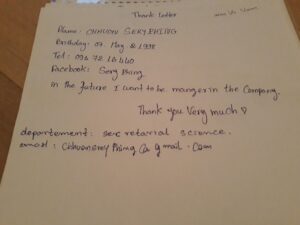 Thank Letter
Name: CHHUON SERY PHING
Birthday: 07 May & 1998
Tel: 093 72 16 440
Facebook: Sery Phing
in the future I want to be manger in the Company.
Thank you Very much ♡
departement: secretarial science.
email: Chhuonsery Phing @ gmail . Com